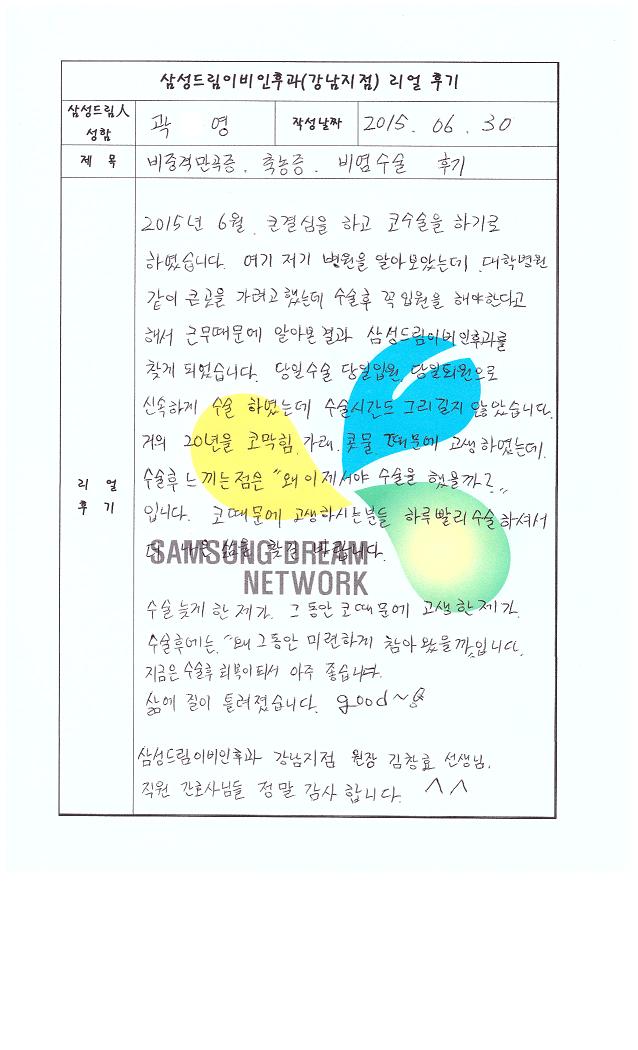 삼성드림이비인후과(강남지점) 리얼 후기
삼성드림人 성함
곽 영
작성날짜
2015. 06. 30
제 목
비중격만곡증. 축농증. 비염수술 후기
리 얼 후 기
2015년 6월. 큰결심을 하고 코수술을 하기로
하였습니다. 여기 저기 병원을 알아보았는데 대학병원
같이 큰곳을 가려고했는데 수술후 꼭입원을 해야한다고
해서 근무때문에 알아본결과 삼성드림이비인후과를
찾게 되었습니다. 당일수술 당일입원, 당일퇴원으로
신속하게 수술 하였는데 수술시간도 그리길지 않았습니다.
거의 20년을 코막힘, 가래, 콧물 때문에 고생하였는데.
수술후 느끼는점은 "왜 이제서야 수술을 했을까?"
입니다. 코때문에 고생하시는분들 하루빨리 수술하셔서
더 나은 삶을 찾길 바랍니다.
SAMSUNG DREAM
NETWORK
수술늦게 한 제가. 그동안 코때문에 고생한제가.
수술후에는, "왜그동안 미련하게 참아왔을까"입니다.
지금은 수술후 회복이되서 아주 좋습니다.
삶에 질이 틀려졌습니다. good~
삼성드림이비인후과 강남지점 원장 김창효 선생님.
직원 간호사님들 정말 감사 합니다. ^^